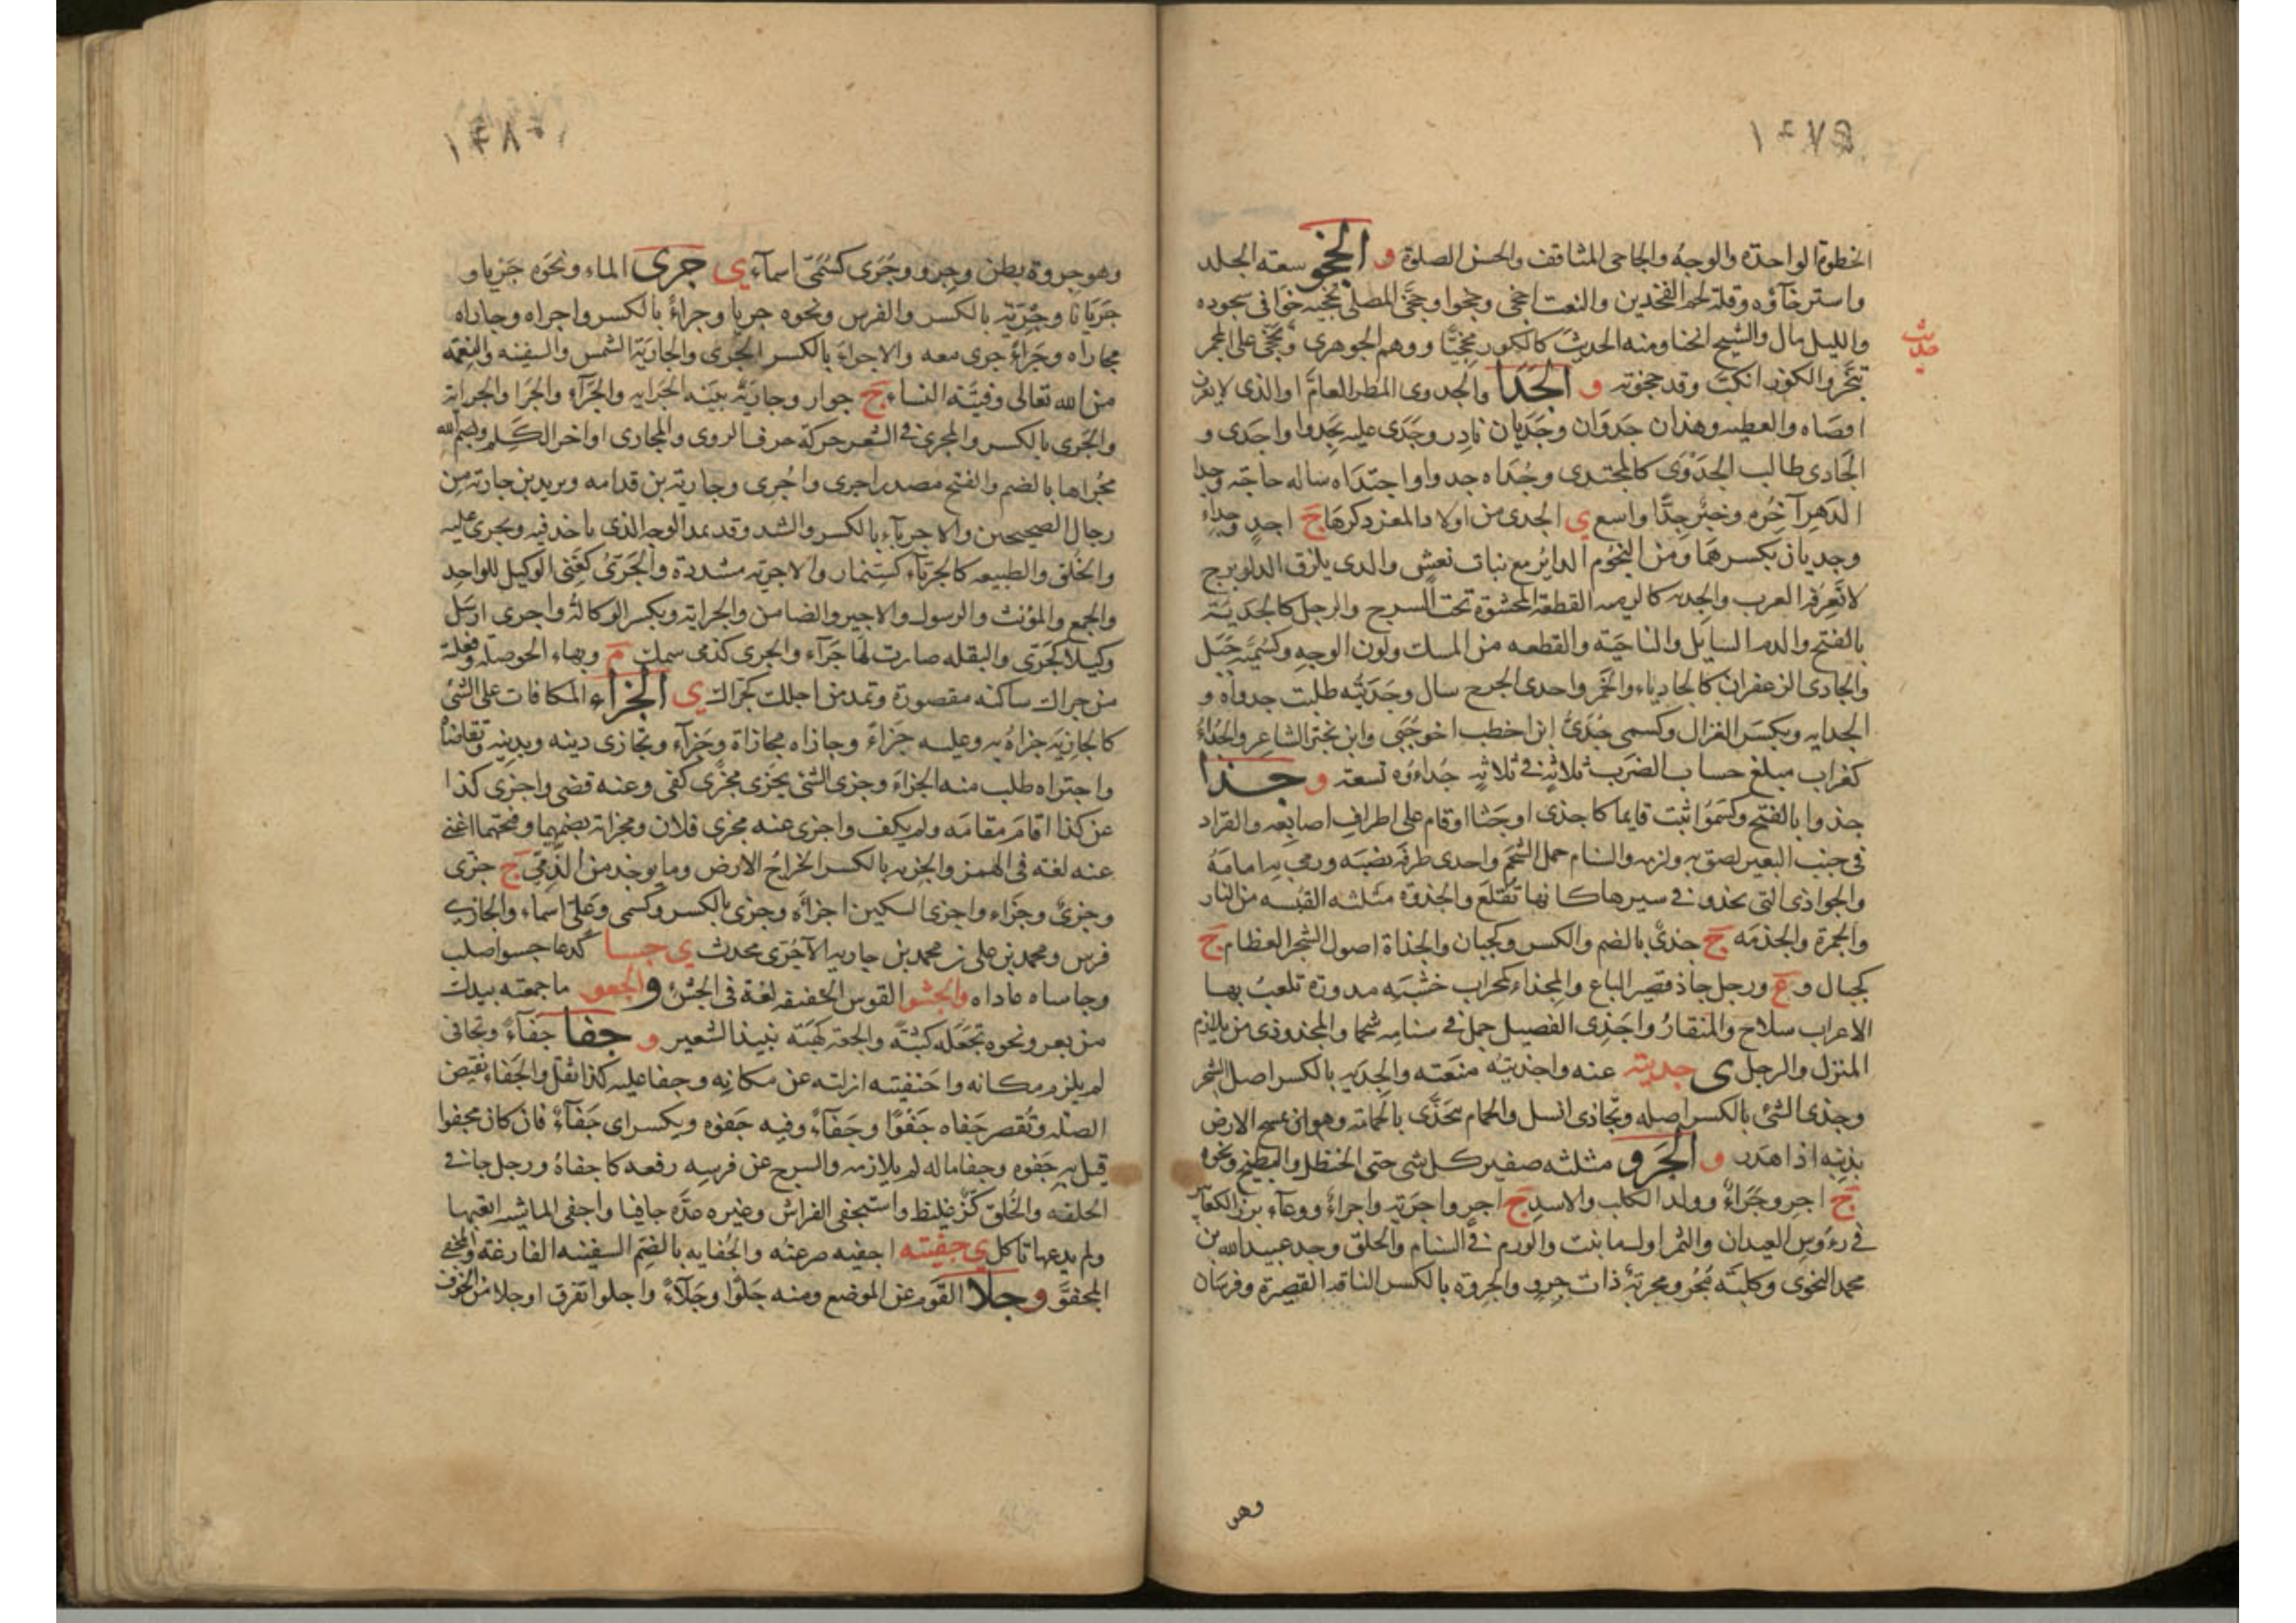 الخطوة الواحدة والوجهُ والجاحى المثاقف والحسن الصلوة و الجخو سعة الجلد
واسترخآؤه وقلة لحم الفخدين والنعت اجخى وجخوا وجخَّى المصلى تجخيه خَوَّا فى سجوده
والليل مال والشيح انحنا ومنه الحديث كالكوز مجخيًّا ووهم الجوهرى وتجخَّى على المجمر
حديث
تبخَّر والكوز انكبَّ وقد جخوته و الجَدَا والجدوى المطر العامّ او الذى لايعرف
اقصَاه والعطيه وهذان جَدَوَان وجَدَيان نادِر وجَدَى عليه يَجدوا واجدَى و
الجَادى طالب الجَدْوَى كالمجتدى وجَدَاه جدوا واجتدَاه ساله حاجة وجدا
الدَهرِ آخِرُه وخيرٌ جدًا واسع ى الجدى من اولاد المعز ذكرها ج اجدٍ وجداء
وجديان بكسرهمَا ومن النجُوم الداير مع نبات نعش والدى يلزق الدلو برج
لاتعرفه العرب والجديه كالرميه القطعة المحشوة تحت السرج والرجل كالجَديَة
بالفتح والدم السايل والناحيَة والقطعه من المسك ولون الوجهِ وكسُميَّة جَبَل
والجادى الزعفران كالجادياء والخمر واحدى الجرح سال وجَدَيتُه طلبت جدواه و
الجدايه ويكسَر الغزال وكسمى جُدَىّ ابن اخطب اخو حُيَى وابن بختر الشاعر والجُدَاءُ
كغراب مبلغ حساب الضَرَب ثلاثه فى ثلاثهٍ جُداءُه تسعة و جذا
جذوا بالفتح وكسمُو اثبت قايما كاجذى اوجَثا اوقام على اطراف اصابعه والقراد
فى جنب البعير لصق به ولزمه والسنام حمل الشحم واحدى طرفَه نصَبَه ورمى به امامَهُ
والجواذى التى تجذو فى سيرها كانها تقَلَع والجذوة مثلثه القبسه من النار
والجمرة والجذمه ج جِذىً بالضم والكسر وكجبان والجذاة اصول الشجر العظام ج
كجبال و ع ورجل جاذ قصير الباع والمجذاء كمحراب خشبَه مدورة تلعبُ بها
الاعراب سلاح والمنقارُ واجَذى الفصيل حمل فى سنامِه شحما والمجذوذى من يلازم
المنزل والرجل ى جديته عنه واجذيتُه منَعَته والجِذيه بالكسر اصل الشجر
وجذى الشئ بالكسر اصله وتجاذى انسل والحمام يتَجَذَّى بالحمامَة وهو ان يمسح الارض
بذنبه اذا هَدر و الجَرو مثلثه صغير كل شى حتى الحنظل والبطيخ ونحوه
ج اجرٍ وجرَاءٌ وولد الكلب والاسدِ ج اجرٍ واجريه واجراءٌ ووعآء بزر الكعابير
فى رءوس العيدان والثمر اول ما ينبت والورم فى السنام والحلق وجد عبيدالله بن
محمد النحوى وكلبَة مُجْرٍ ومجريَة ذات جروٍ والجروة بالكسر الناقه القصيرة وفرسَان
وهو
وهو جروة بطن وجِرو وجَرَى كسُمَىّ اسمآء ى جرى الماء ونحوَه جَريا و
جَرَيَانا وجِريَة بالكسر والفرس ونحوه جريا وجراءً بالكسر واجراه وجاراه
مجاراه وجِرَاءً جرى معه والاجراء بالكسر الجَرى والجاريَة الشمس والسفينه والنعمَة
من الله تعالى وفتيَّة النساء ج جوار وجاريَة بينَة الجَرايه والجَرآء والجَرا والجرائية
والجَرى بالكسر والمجرى فى الشعر حركة حرف الروى والمجارى اواخر الكَلم وبسم الله
مجُراها بالضم والفتح مصدر اجرى واُجُرى وجارية بن قدامه ويزيد بن جارية من
رجال الصحيحين والاجريآء بالكسر والشد وقد يمد الوجه الذى ياخذ فيه ويجرى عليه
والخُلق والطبيعه كالجريآء كسِنمار والاجريه مشددة والجَرىُّ كغنى الوكيل للواحِد
والجمع والمؤنث والرسول والاجير والضامن والجراية ويكسر الوكالة واجرى ارسَل
وكيلا كجَرَّى والبقله صارت لها جَرآء والجرى كذمى سمك م وبهاء الحوصله وفعلة
من جراك ساكنه مقصورة وتمد من اجلك كجراك ى الجَزاء المكافات على الشئ
كالجازيَه جزاهُ به وعليه جَزاءً وجازاه مجازاة وجِزآء وتجازى دينه وبدينه تقاضاه
واجتزاه طلب منه الجزاءَ وجزى الشئ يجزى مجزى كفى وعنه قضى واجزى كذا
عن كذا اقامَ مقامَه ولم يكف واجزى عنه مجزى فلان ومجزاته بضمهما وفتحهما اغنى
عنه لغة فى الهمز والجزيه بالكسر الخراج الارض وما يوخذ من الذِمّى ج جزى
وجزىٌ وجزَاء واجزى السكين اجزآه وجزى بالكسر وكسمى وعلى اسماء والجازى
فرس ومحمد بن على بن محمد بن جاريه الآجُرّى محدث ى جسا كدعا جسوا صلب
وجاساه عاداه والجشو القوس الخفيفه لغة فى الجَشِئ والجعو ما جمعته بيدك
من بعر ونحوه تجعله كبثة والجعة كهبَة نبيذ الشعير و جفا جفآءً وتجافى
لم يلزم مكانه واجتفيته ازلته عن مكانِه وجفا عليه كذا ثقل والجَفاء نقيض
الصله وتُقصر جَفاه جَفوًا وجَفَآءً وفيه جَفوه ويكسر اى جَفآءٌ فان كان مجفوا
قيل به جَفوه وجفا ماله لم يلازمه والسرج عن فرسِه رفعه كاجفاهُ ورجل جافى
الخلقه والخُلق كَزٌّ غليظ واستجفى الفراش وغيره عدَّه جافيا واجفى الماشيه اتعبها
ولم يدعها تاكل ى جفيته اجفيه صرعته والجُفايه بالضم السفينه الفارغة والمجفى
المجفوَّ و جلا القَوم عن الموضع ومنه جَلوًا وجَلآءً واجلوا تفرق او جلا من الخوف